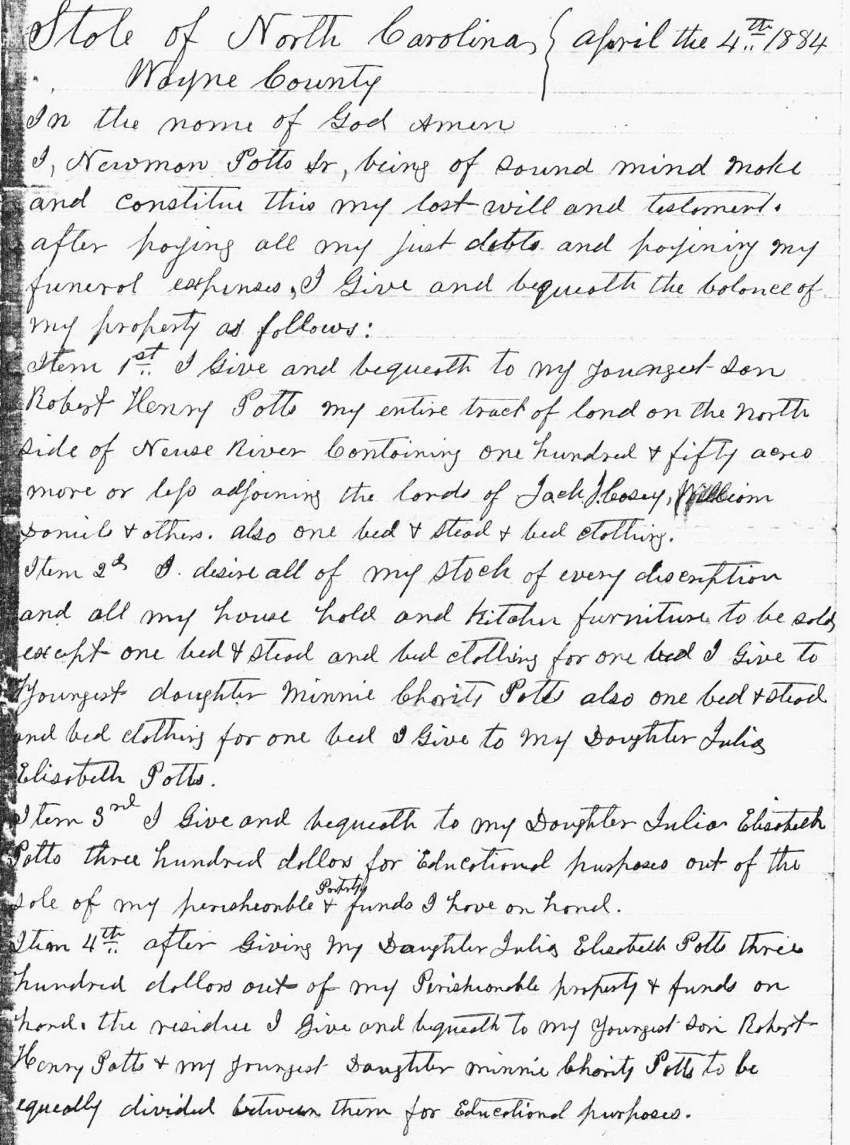 State of North Carolina } April the 4th 1884
Wayne County
In the name of God Amen
I, Newman Potts Sr, being of sound mind make
and constitue this my last will and testament.
after paying all my just debts and payining my
funeral expenses, I Give and bequeath the balance of
my property as follows:
Item 1st I Give and bequeath to my youngest son
Robert Henry Potts my entire tract of land on the north
side of Neuse River Containing one hundred & fifty acres
more or less adjoining the lands of Jack J. Casey, William
Daniels & others. also one bed & stead & bed clothing.
Item 2d I desire all of my stock of every discription
and all my house hold and kitchen furniture to be sold,
except one bed & stead and bed clothing for one bed I Give to
Youngest daughter Minnie Charity Potts also one bed & stead
and bed clothing for one bed I Give to my Daughter Julia
Elisabeth Potts.
Item 3rd I Give and bequeath to my Daughter Julia Elisabeth
Potts three hundred dollars for Educational purposes out of the
sale of my perisheonable & funds I have on hand.
Item 4th after Giving my Daughter Julia Elisabeth Potts three
hundred dollars out of my Perishionable property & funds on
hand. the residue I Give and bequeath to my Youngest son Robert
Henry Potts & my youngest Daughter minnie Charity Potts to be
equeally divided between them for Educational purposes.